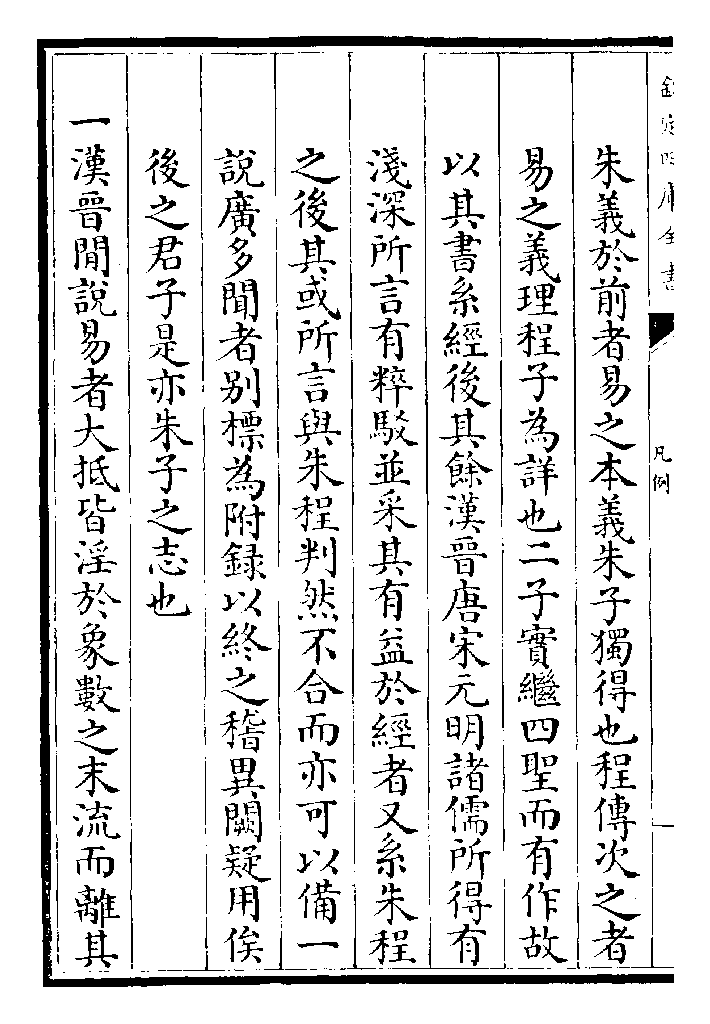 欽定四庫全書
凡例
朱義於前者易之本義朱子獨得也程傳次之者
易之義理程子為詳也二子實繼四聖而有作故
以其書系經後其餘漢晉唐宋元明諸儒所得有
淺深所言有粹駁並采其有益於經者又系朱程
之後其或所言與朱程判然不合而亦可以備一
說廣多聞者别標為附録以終之稽異闕疑用俟
後之君子是亦朱子之志也
一漢晉間說易者大抵皆淫於象數之末流而離其